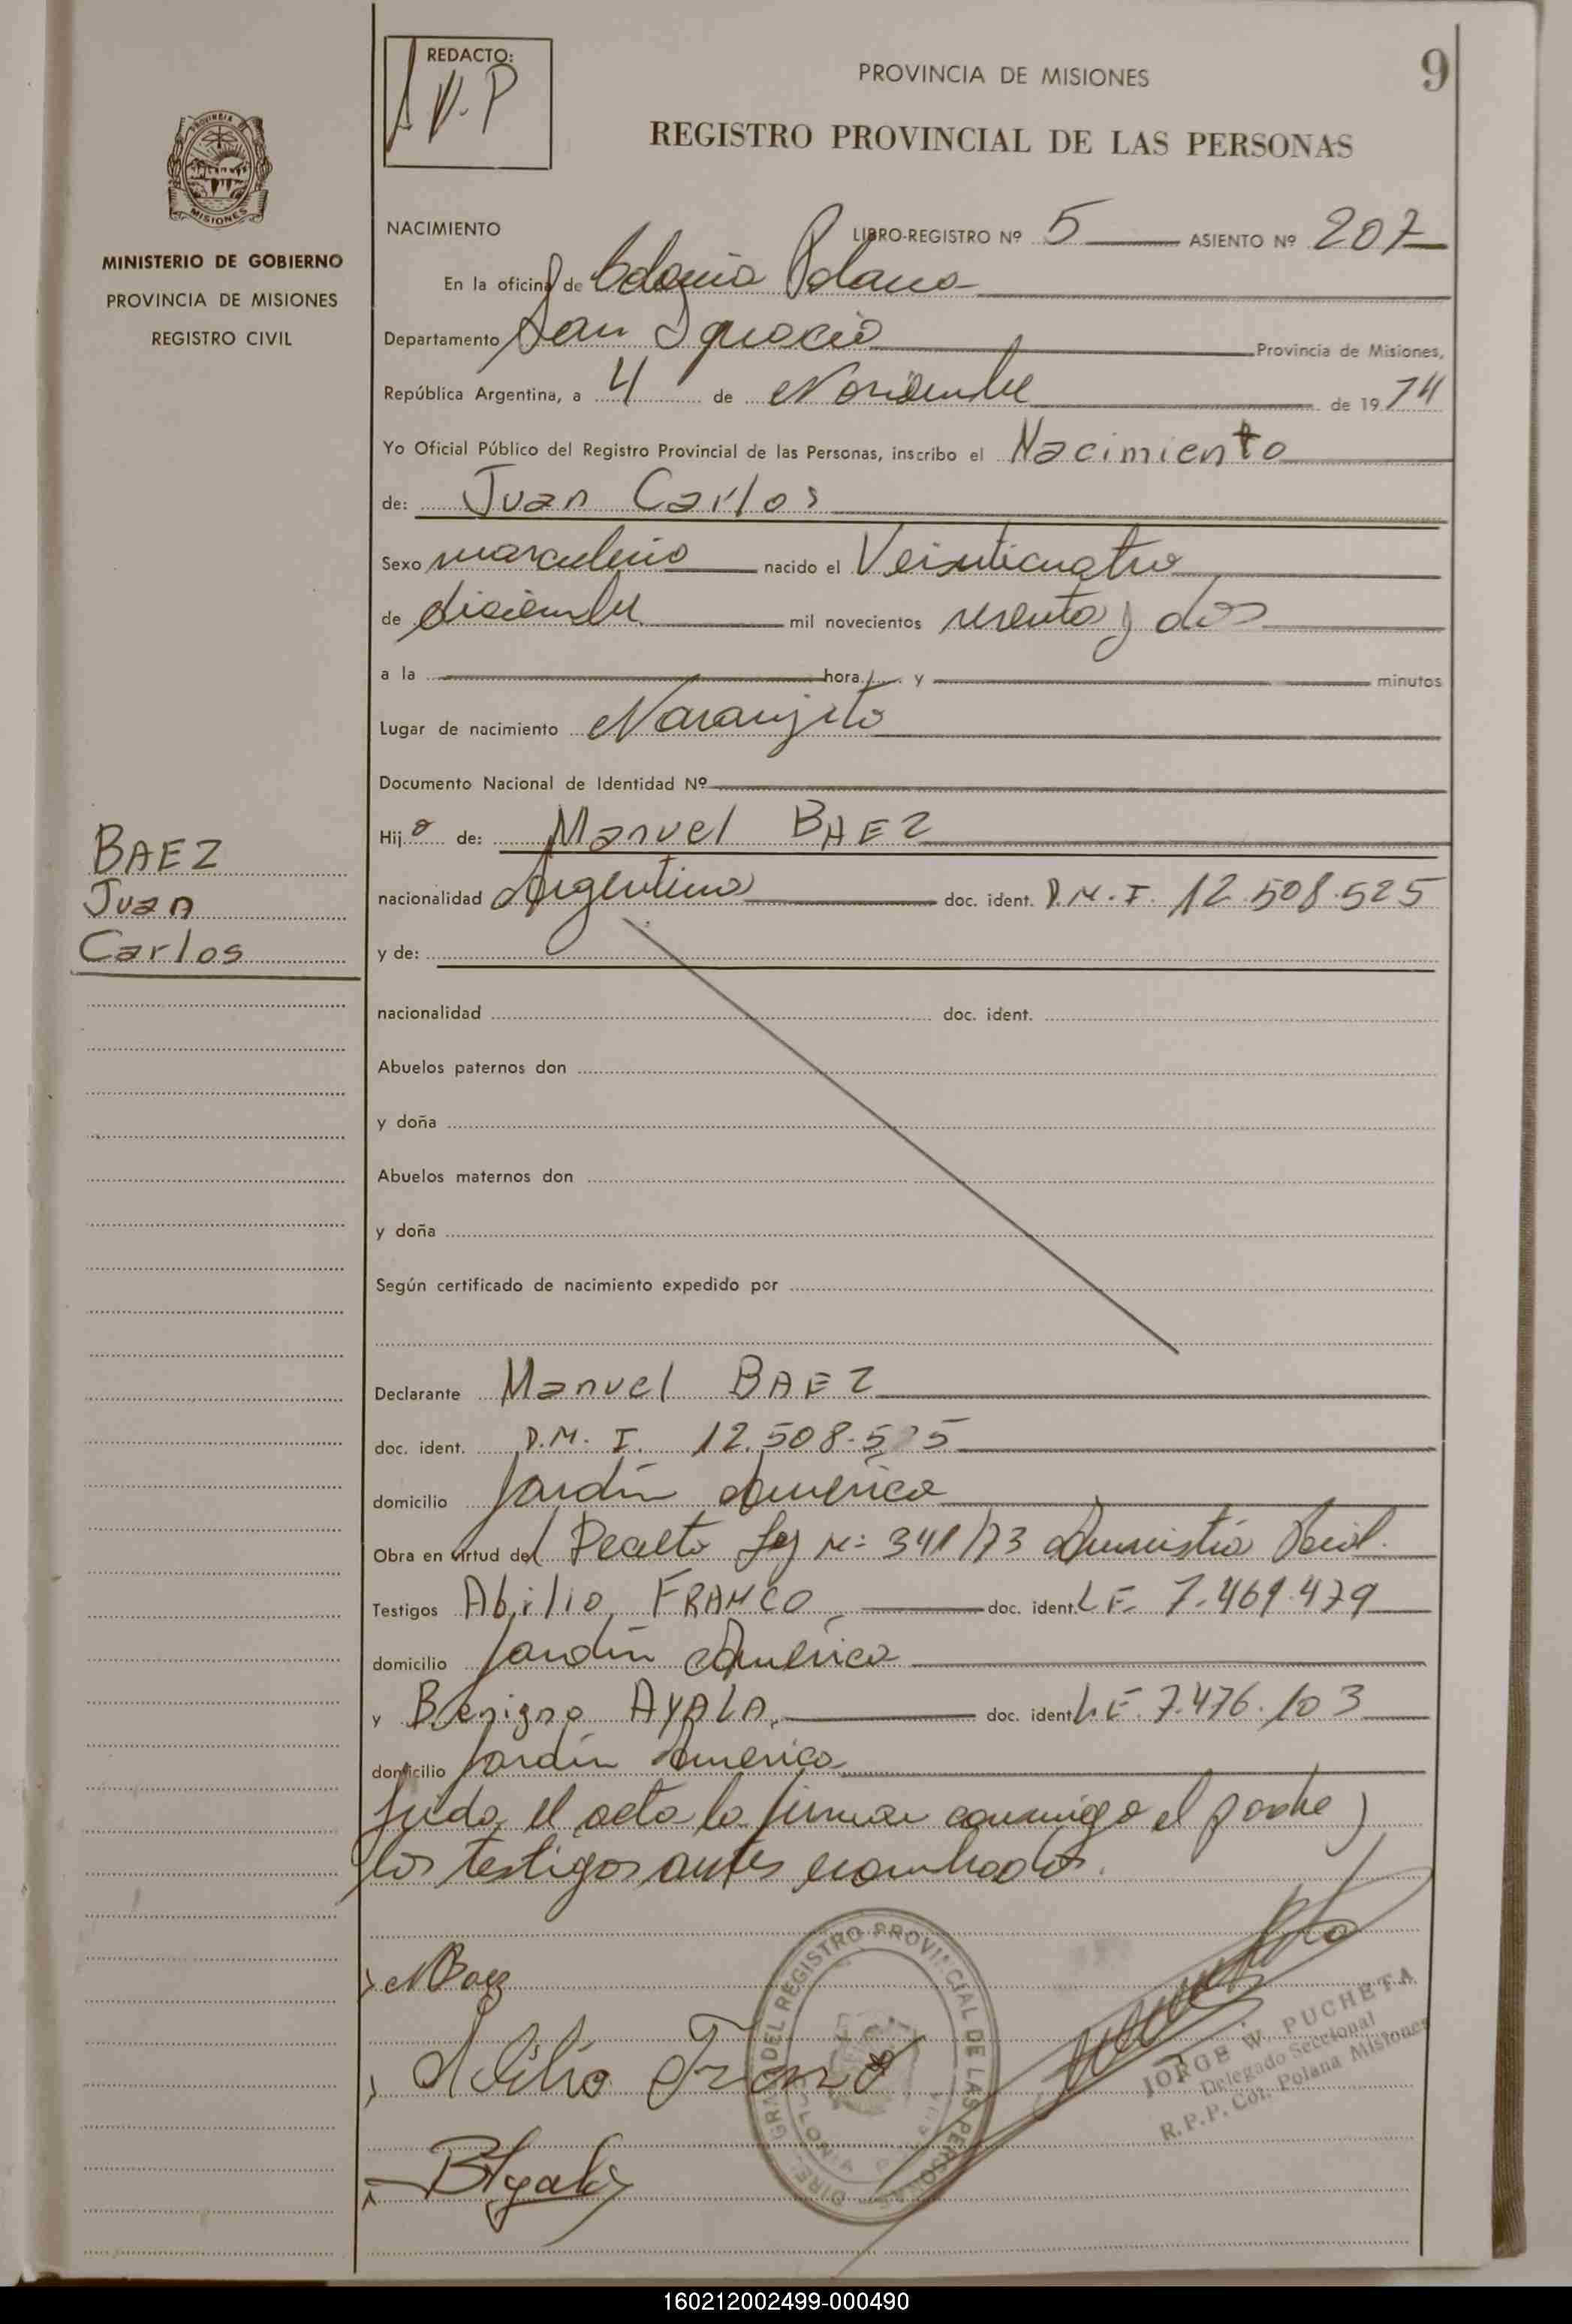 REDACTO:
V.P
PROVINCIA DE MISIONES
9
REGISTRO PROVINCIAL DE LAS PERSONAS
PROVINCIA DE
MISIONES
MINISTERIO DE GOBIERNO
PROVINCIA DE MISIONES
REGISTRO CIVIL
NACIMIENTO
LIBRO-REGISTRO Nº 5 ASIENTO Nº 207
En la oficina de Colonia Polana
Departamento San Ignacio Provincia de Misiones,
República Argentina, a 4 de Noviembre de 1974
Yo Oficial Público del Registro Provincial de las Personas, inscribo el Nacimiento
de: Juan Carlos
Sexo masculino nacido el Veinticuatro
de diciembre mil novecientos sesenta y dos
a la hora y minutos
Lugar de nacimiento Naranjito
Documento Nacional de Identidad Nº
Hijo de: Manuel BAEZ
BAEZ
Juan
Carlos
nacionalidad Argentina doc. ident. D.M.I. 12.508.525
y de:
nacionalidad doc. ident.
Abuelos paternos don
y doña
Abuelos maternos don
y doña
Según certificado de nacimiento expedido por
Declarante Manuel BAEZ
doc. ident. D.M.I. 12.508.525
domicilio Jardín América
Obra en virtud del Decreto Ley Nº 341/73 Amnistía
Testigos Abilio FRANCO doc. ident. L.E. 7.461.479
domicilio Jardín América
y Benigno AYALA, doc. ident L.E. 7.476.103
domicilio Jardín América
leida el acta la firman conmigo el padre y
los testigos antes nombrados.
MBaez
Abilio Franco
BAyala
DIREC. GRAL. DEL REGISTRO PROVINCIAL DE LAS PERSONAS
COLONIA POLANA
JORGE W. PUCHETA
Delegado Seccional
R.P.P. Col. Polana Misiones
160212002499-000490